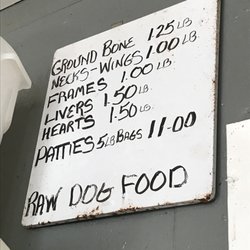 GROUND BONE 1.25 LB
NECKS-WINGS 1.00 LB
FRAMES 1.00 LB
LIVERS 1.50 LB.
HEARTS 1.50 LB.
PATTIES 5LB BAGS 11.00
RAW DOG FOOD